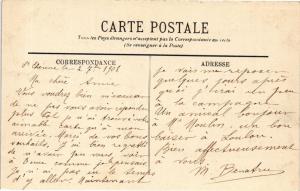 CARTE POSTALE
Tous les Pays étrangers n'acceptent pas la Correspondance au recto
(Se renseigner à la Poste)
CORRESPONDANCE
ADRESSE
St Etienne le 2 7bre 1908
Ma chère Amie
Vous voudrez bien m'excuser
de ne pas vous avoir répondu
plus tôt j'ai trouvé votre
aimable carte qu'à mon
arrivée. Merci de vos bons
souhaits, j'ai bien regretté
de n'avoir pas pu vous voir
à
j'ai pas eu le temps
d'y aller. Maintenant
je vais me reposer
quelques jours après
quoi j'irai un peu
à la campagne
Un amical bonjour
à Mr Moulin, un bon
baiser à Loulou.
Bien affectueusement
à vous.
M.